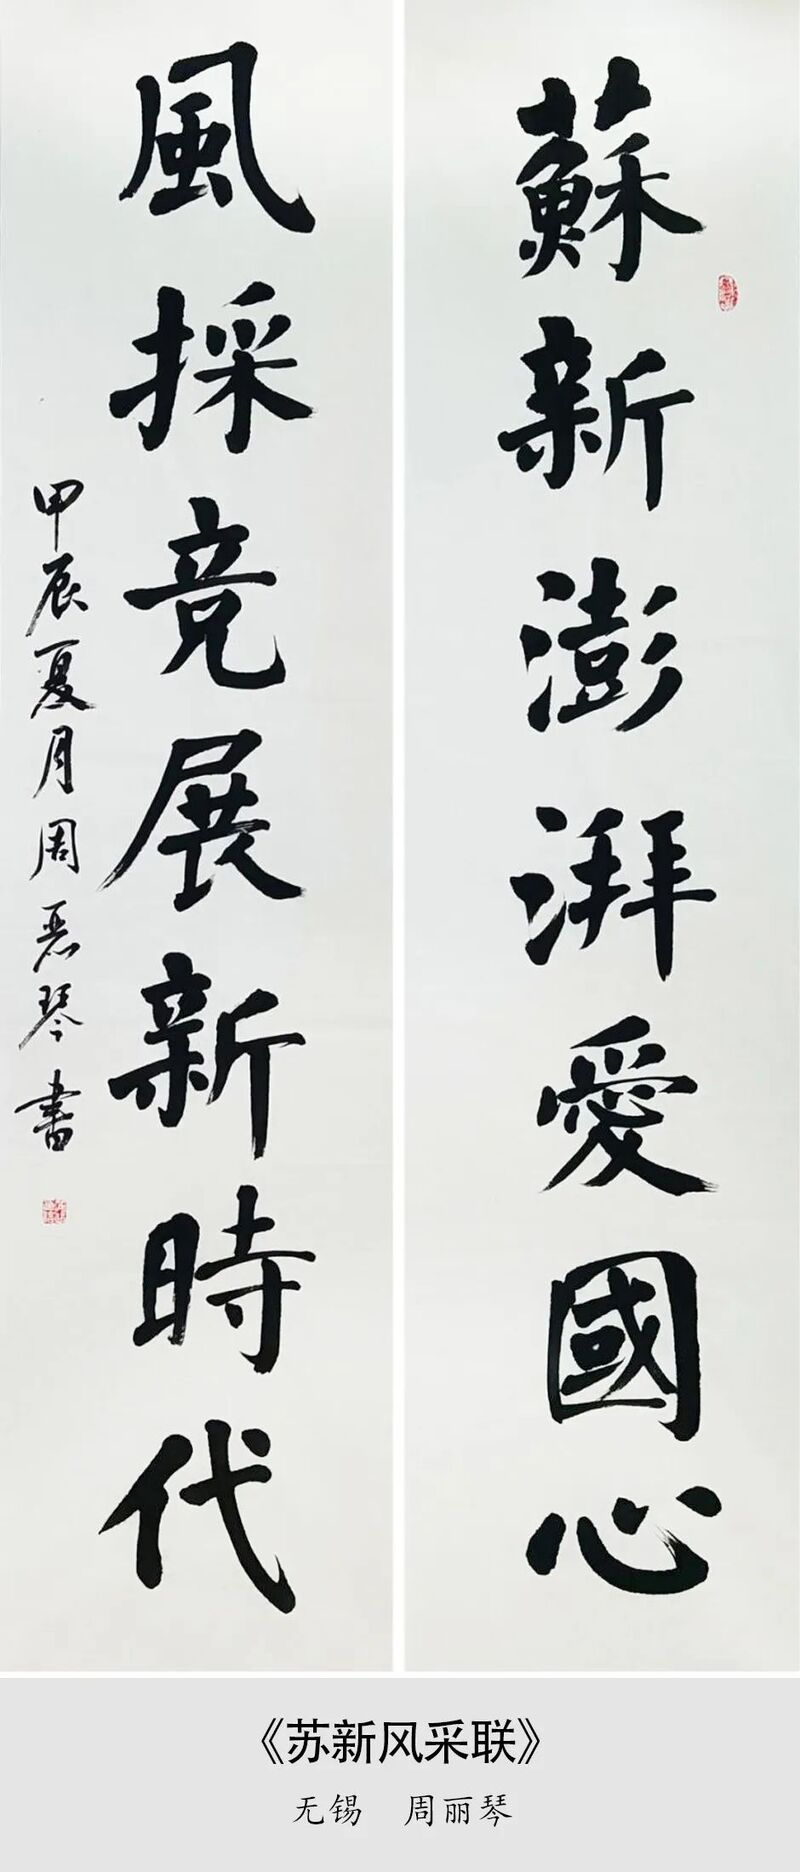 蘇新澎湃愛國心
風採竞展新時代
甲辰夏月周丽琴書
《苏新风采联》
无锡 周丽琴